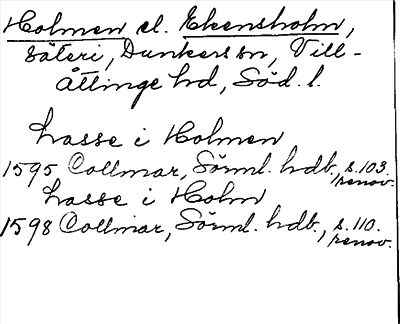 Holmen el. Ekensholm,
säteri, Dunkers sn, Vill-
åttinge hd, Söd. l.
Lasse i Holmen
1595 Collmar, Sörml. hdb., s. 103.
renov.
Lasse i Holm
1598 Collmar, Sörml. hdb., s. 110.
renov.